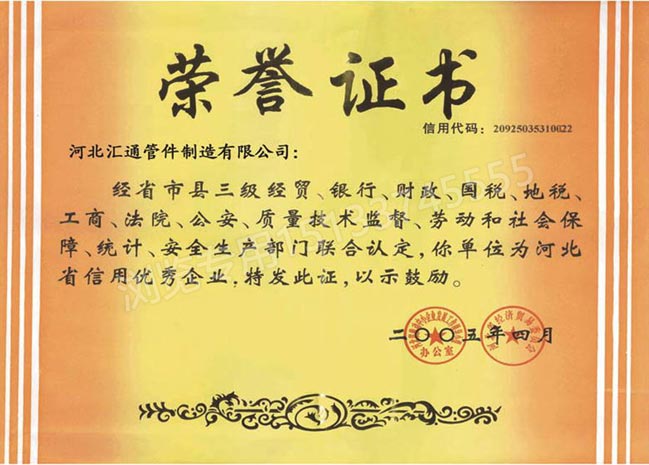 荣誉证书
信用代码：20925035310022
河北汇通管件制造有限公司：
经省市县三级经贸、银行、财政、国税、地税、
工商、法院、公安、质量技术监督、劳动和社会保
障、统计、安全生产部门联合认定，你单位为河北
省信用优秀企业，特发此证，以示鼓励。
二〇〇五年四月
办公室
浏览专用15133745555